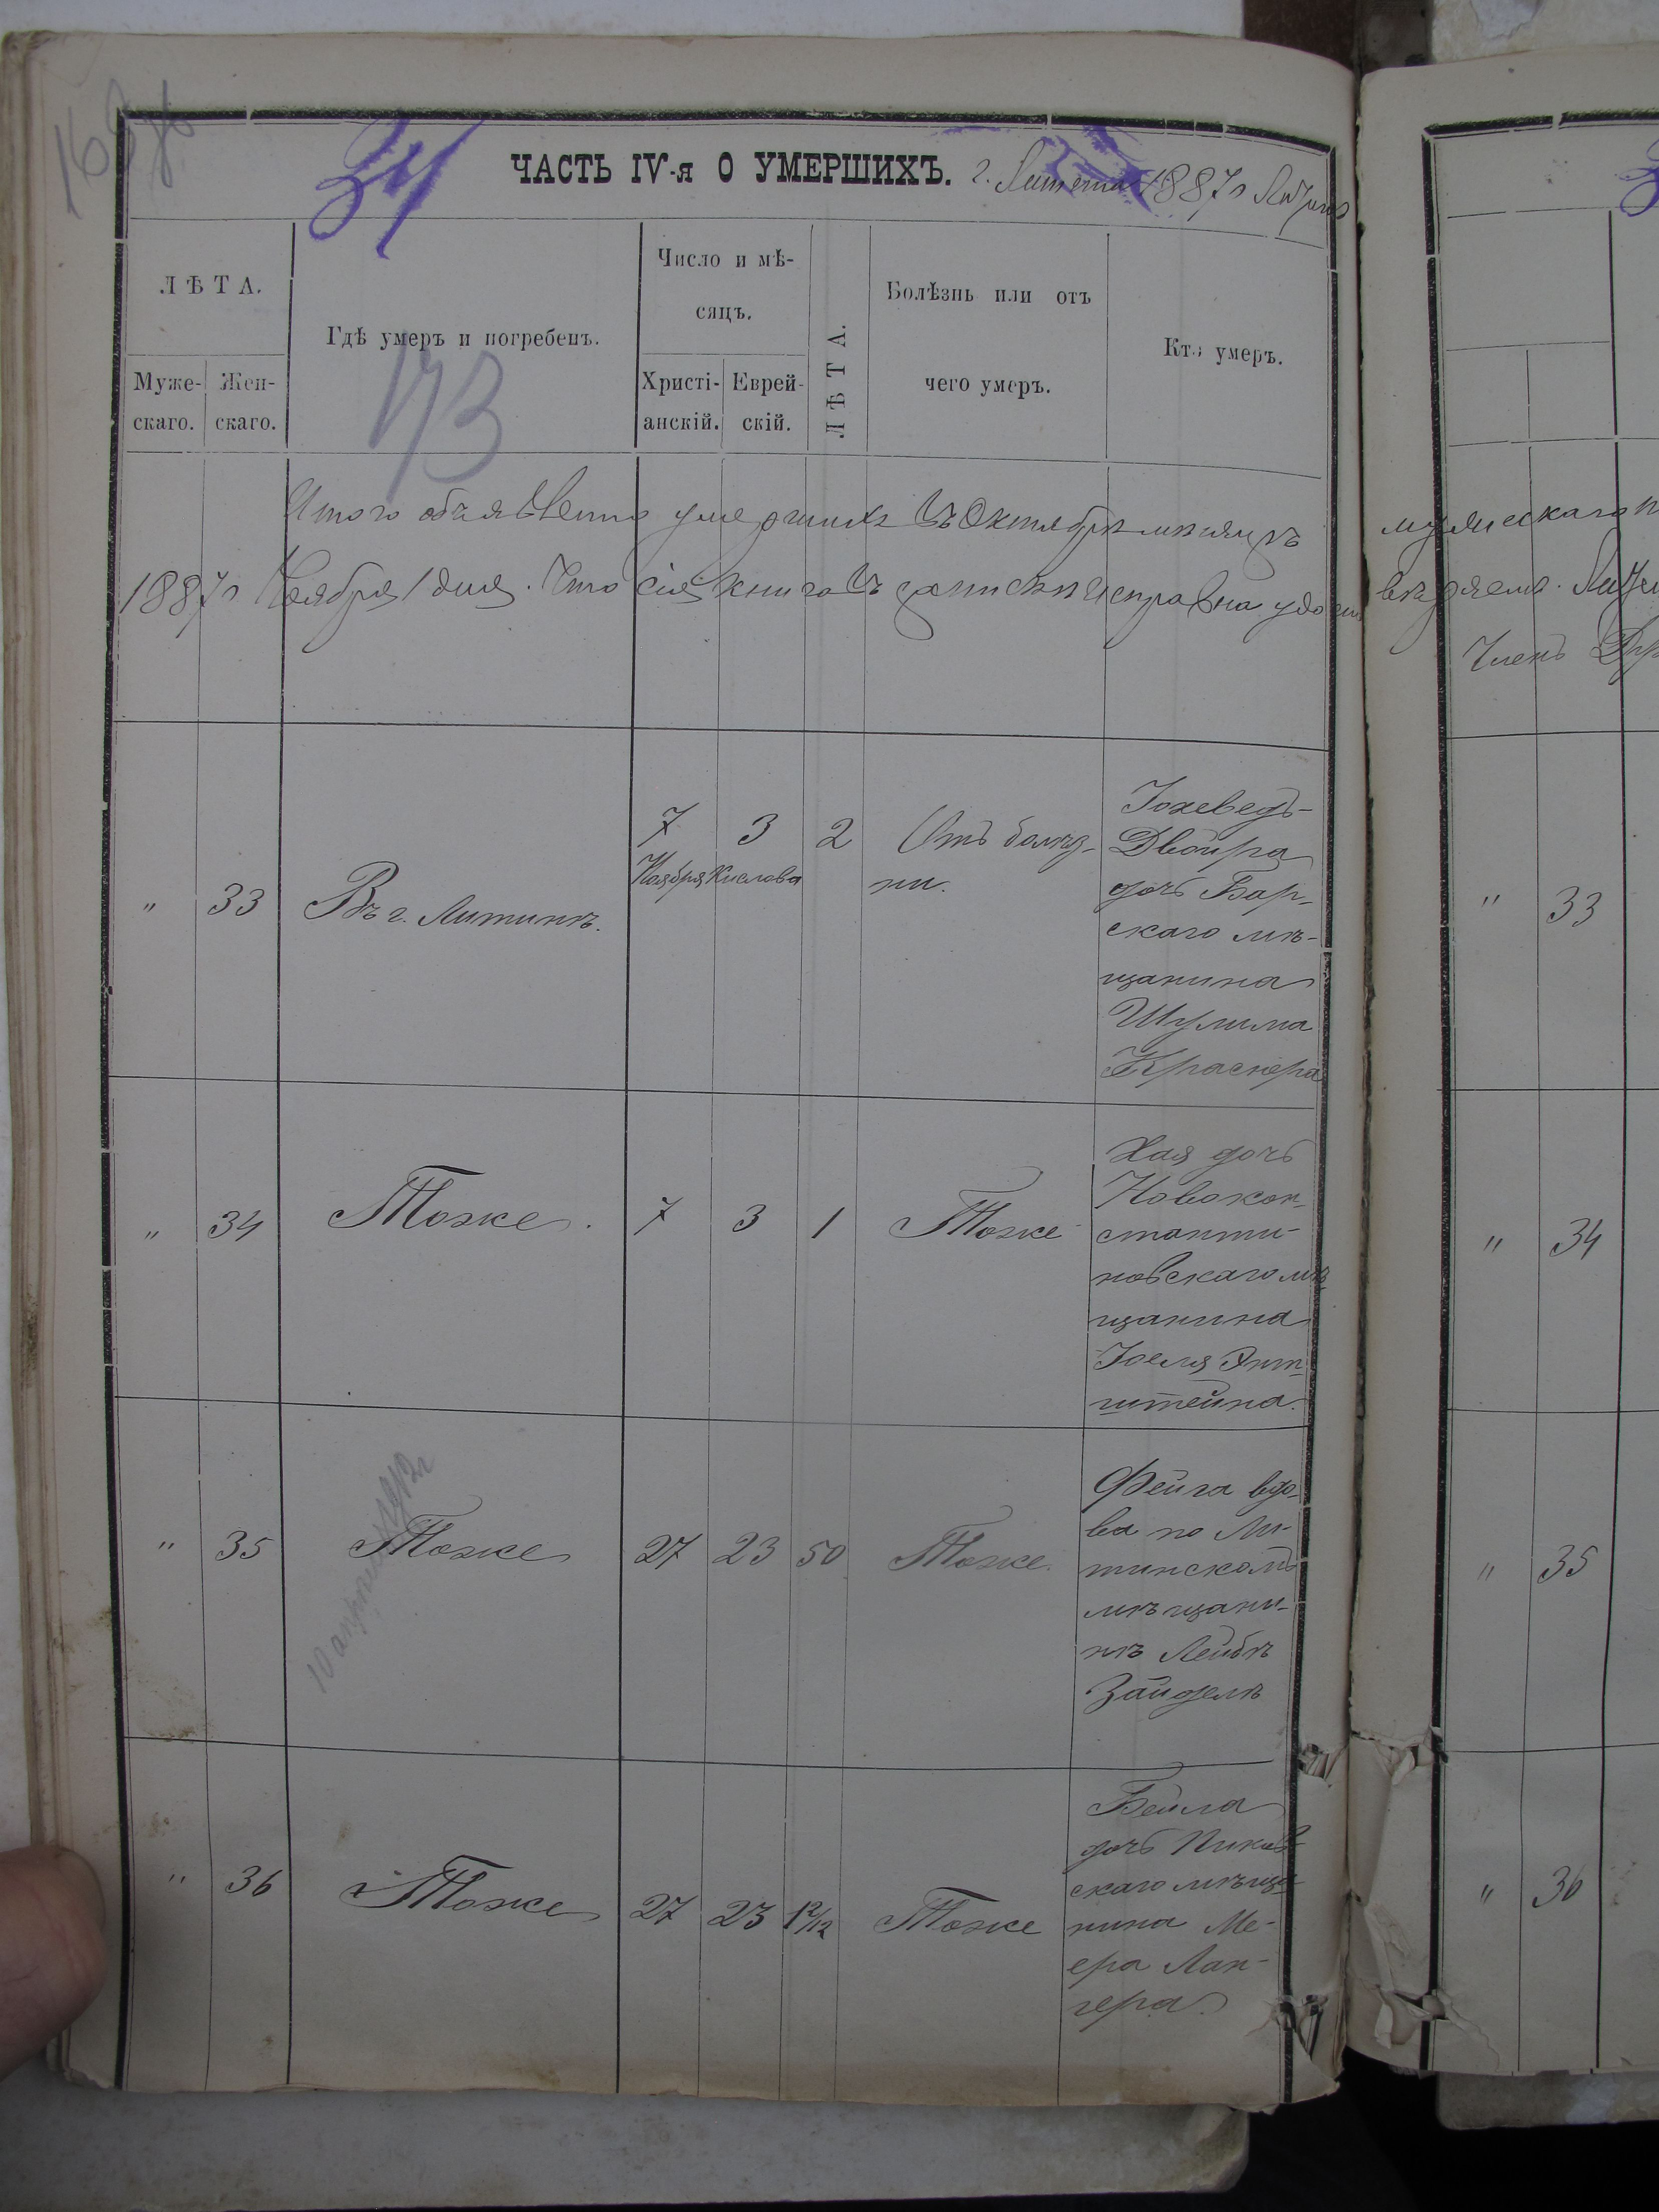 34
ЧАСТЬ IV-я О УМЕРШИХЪ. г. Литина 1887 г
ЛѢТА.
Муже-
скаго.
Жен-
скаго.
Гдѣ умеръ и погребенъ.
173
Число и мѣ-
сяцъ.
Христі-
анскій.
Еврей-
скій.
ЛѢТА.
Болѣзнь или отъ
чего умеръ.
Кто умеръ.
Итого объявлено умершихъ въ Октябрѣ мѣсяцѣ
1887 г Ноября 1 дня. Что сія книга въ запискѣ исправна
Членъ
" 33 Въ г. Литинѣ.
7 3 2
Ноября Кислова
Отъ болѣз-
ни.
Іохеведъ-
Двойра
дочь Бар-
скаго мѣ-
щанина
Шулима
Краснера
" 33
" 34 Тоже. 7 3 1 Тоже
Хая дочь
Новокон-
станти-
новскаго мѣ
щанина
Іоеля Эпп-
штейна.
" 34
" 35 Тоже 27 23 50 Тоже.
Фейга вдо-
ва по Ли-
тинскомъ
мѣщани-
нѣ Лейбѣ
Зайделѣ
" 35
" 36 Тоже 27 23 1 2/12 Тоже
Бейла
дочь Пиков
скаго мѣща
нина Ме-
ера Лан-
гера.
" 36